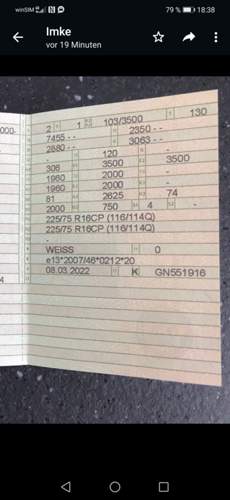 winSIM 79 % 18:38
Imke
vor 19 Minuten
000
2 1 103/3500 130
7455 - - 2350 - -
2880 - - 3063 - -
- 120 -
308 3500 3500
1980 2000 -
1980 2000 -
81 2625 74
2000 750 4 -
225/75 R16CP (116/114Q)
225/75 R16CP (116/114Q)
-
WEISS 0
e13*2007/46*0212*20
08.03.2022 K GN551916
4